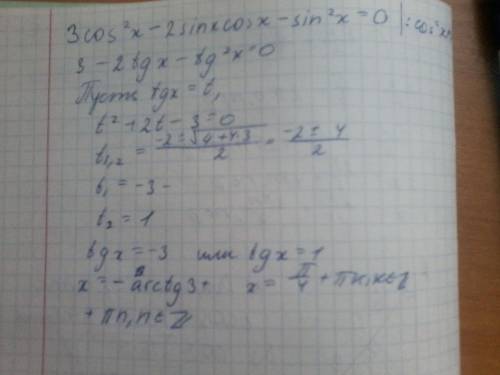 3cos²x - 2sinxcosx - sin²x = 0 | : cos²x≠
3 - 2tgx - tg²x = 0
Пусть tgx = t,
t² + 2t - 3 = 0
t₁,₂ = (-2 ± √(4+4·3))/2 = (-2 ± 4)/2
t₁ = -3
t₂ = 1
tgx = -3 или tgx = 1
x = -arctg3 + x = π/4 + πk, k∈Z
+ πn, n∈Z